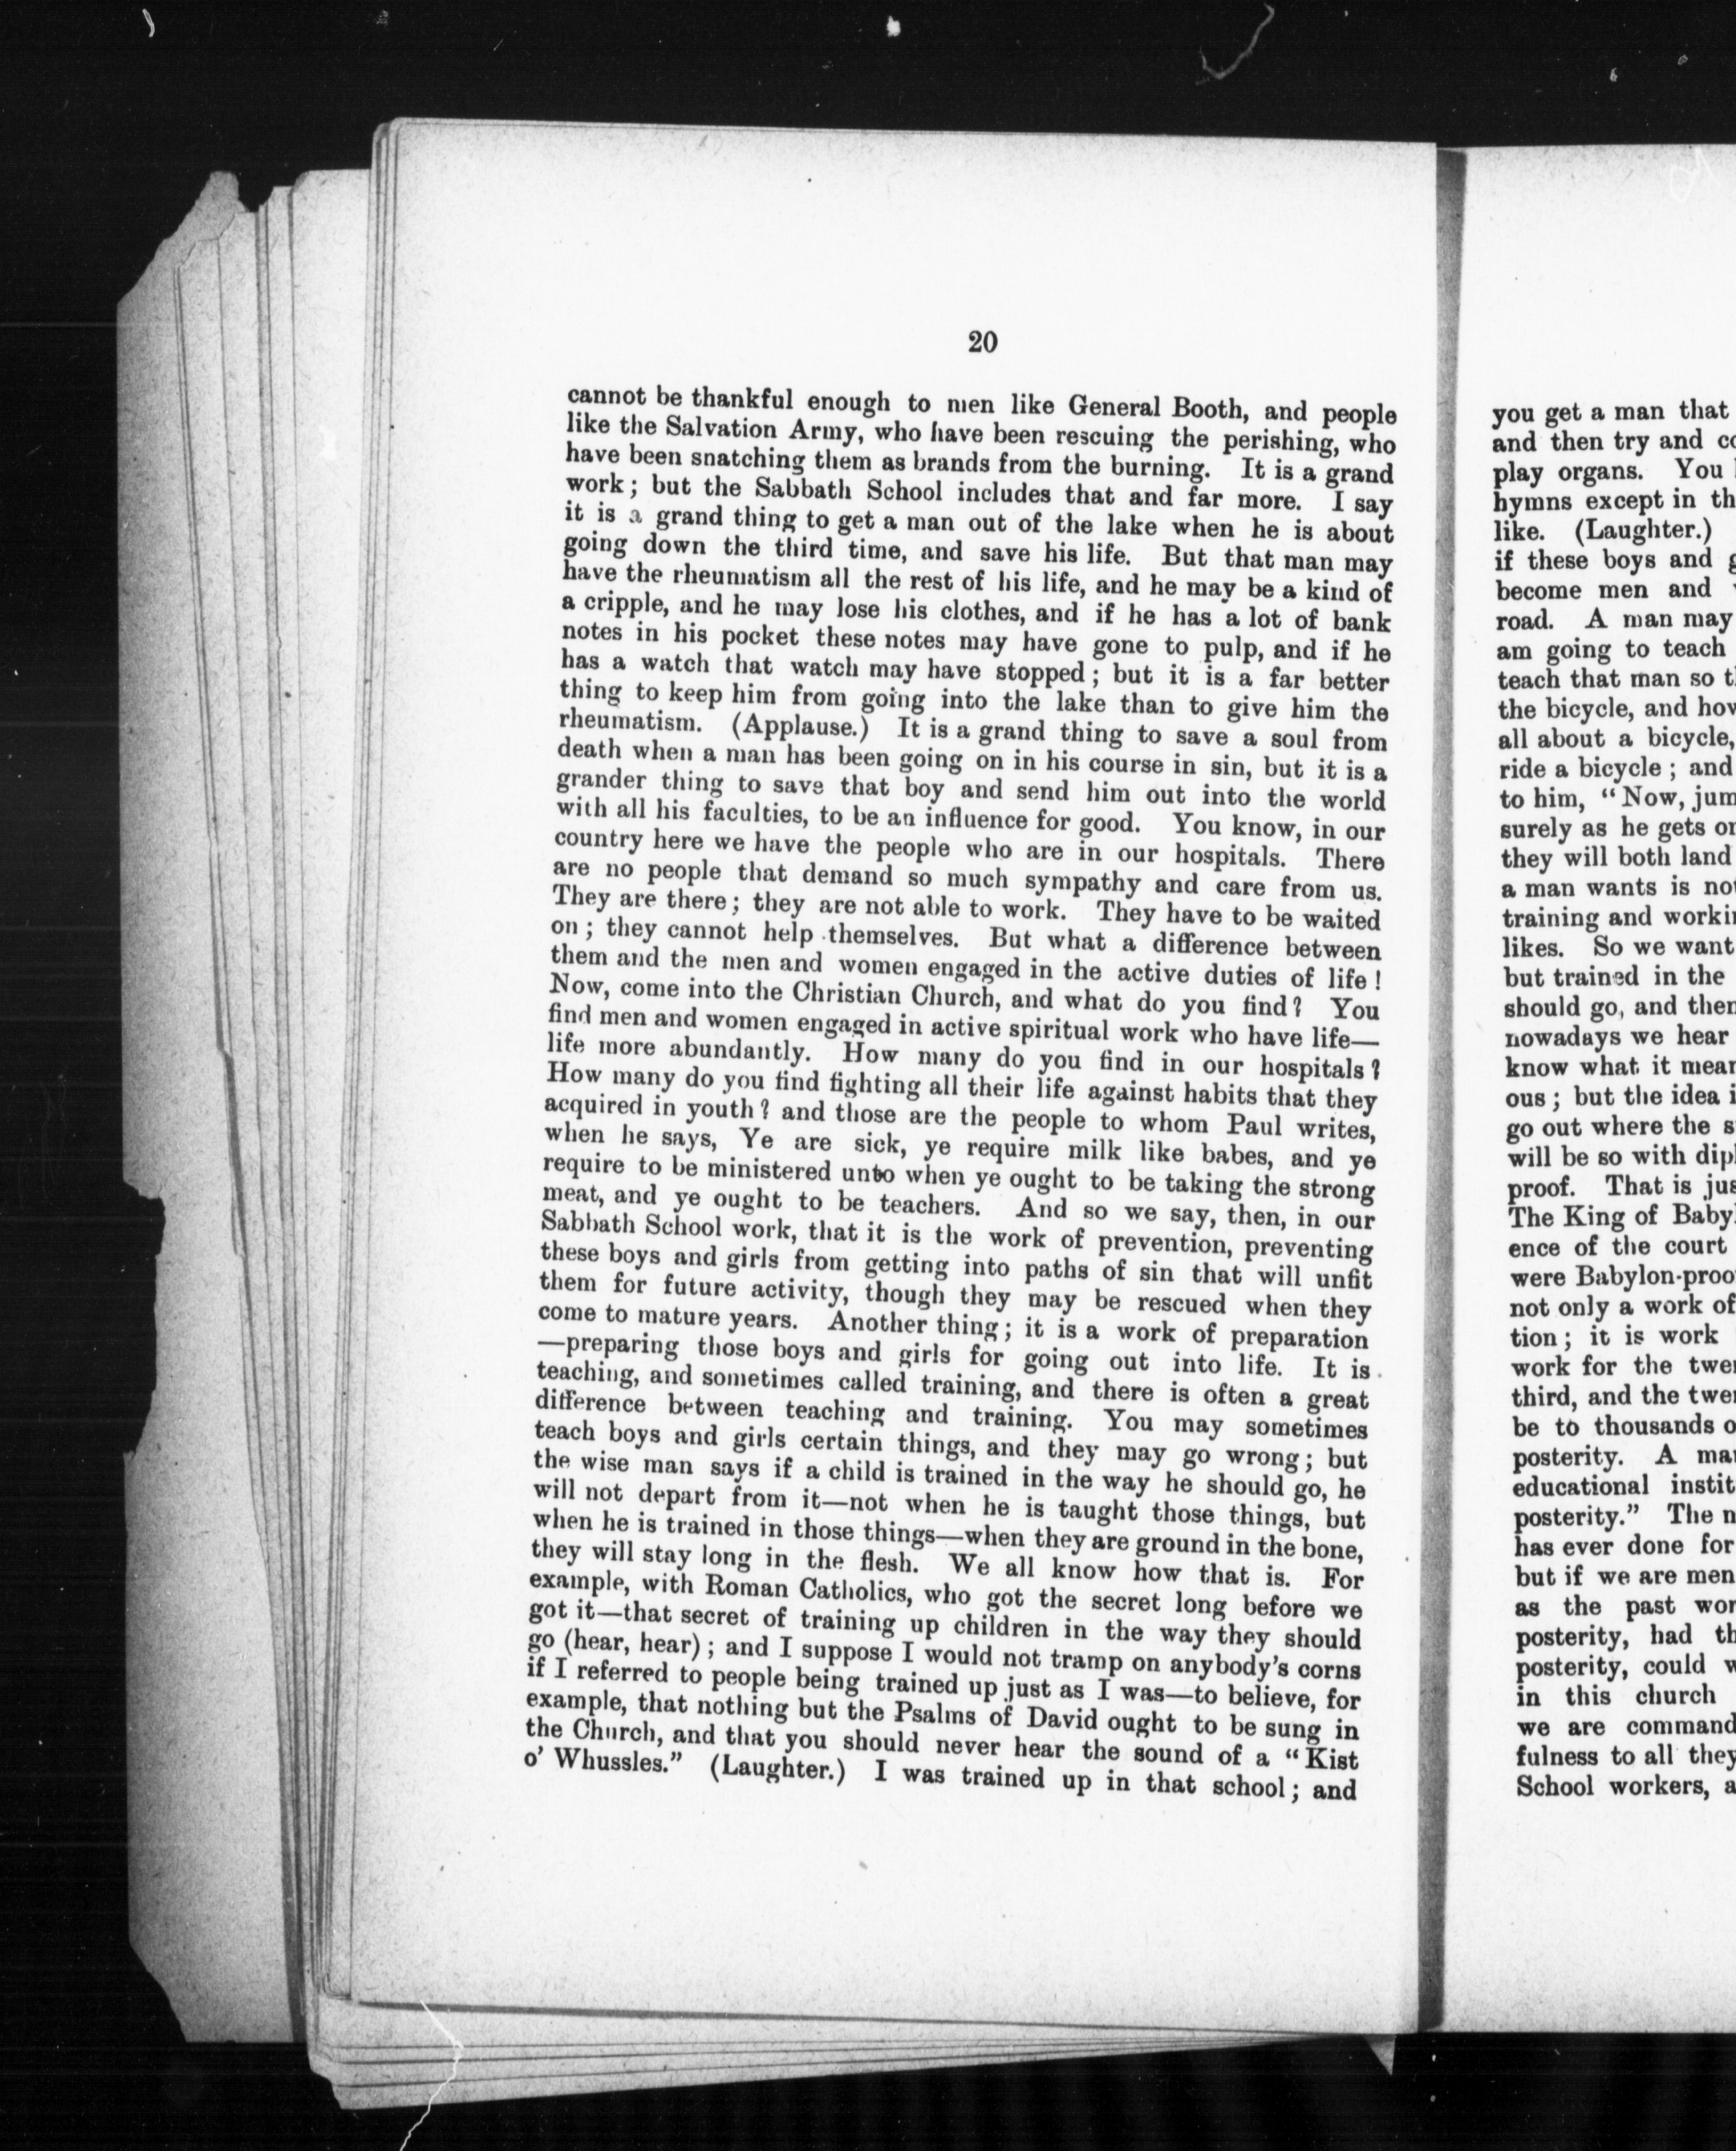 20
cannot be thankful enough to men like General Booth, and people
like the Salvation Army, who have been rescuing the perishing, who
have been snatching them as brands from the burning. It is a grand
work; but the Sabbath School includes that and far more. I say
it is a grand thing to get a man out of the lake when he is about
going down the third time, and save his life. But that man may
have the rheumatism all the rest of his life, and he may be a kind of
a cripple, and he may lose his clothes, and if he has a lot of bank
notes in his pocket these notes may have gone to pulp, and if he
has a watch that watch may have stopped; but it is a far better
thing to keep him from going into the lake than to give him the
rheumatism. (Applause.) It is a grand thing to save a soul from
death when a man has been going on in his course in sin, but it is a
grander thing to save that boy and send him out into the world
with all his faculties, to be an influence for good. You know, in our
country here we have the people who are in our hospitals. There
are no people that demand so much sympathy and care from us.
They are there; they are not able to work. They have to be waited
on; they cannot help themselves. But what a difference between
them and the men and women engaged in the active duties of life!
Now, come into the Christian Church, and what do you find? You
find men and women engaged in active spiritual work who have life—
life more abundantly. How many do you find in our hospitals?
How many do you find fighting all their life against habits that they
acquired in youth? and those are the people to whom Paul writes,
when he says, Ye are sick, ye require milk like babes, and ye
require to be ministered unto when ye ought to be taking the strong
meat, and ye ought to be teachers. And so we say, then, in our
Sabbath School work, that it is the work of prevention, preventing
these boys and girls from getting into paths of sin that will unfit
them for future activity, though they may be rescued when they
come to mature years. Another thing; it is a work of preparation
—preparing those boys and girls for going out into life. It is
teaching, and sometimes called training, and there is often a great
difference between teaching and training. You may sometimes
teach boys and girls certain things, and they may go wrong; but
the wise man says if a child is trained in the way he should go, he
will not depart from it—not when he is taught those things, but
when he is trained in those things—when they are ground in the bone,
they will stay long in the flesh. We all know how that is. For
example, with Roman Catholics, who got the secret long before we
got it—that secret of training up children in the way they should
go (hear, hear); and I suppose I would not tramp on anybody's corns
if I referred to people being trained up just as I was—to believe, for
example, that nothing but the Psalms of David ought to be sung in
the Church, and that you should never hear the sound of a "Kist
o' Whussles." (Laughter.) I was trained up in that school; and
you get a man that
and then try and
play organs. You
hymns except in
like. (Laughter.)
if these boys and
become men and
road. A man may
am going to teach
teach that man so
the bicycle, and
all about a bicycle,
ride a bicycle; and
to him, "Now,
surely as he gets
they will both land
a man wants is
training and
likes. So we want
but trained in the
should go, and
nowadays we hear
know what it
ous; but the idea
go out where the
will be so with
proof. That is
The King of
ence of the court
were
not only a work of
tion; it is work
work for the
third, and the
be to thousands
posterity. A
educational
posterity." The
has ever done for
but if we are men
as the past
posterity, had
posterity, could
in this church
we are
fulness to all
School workers,